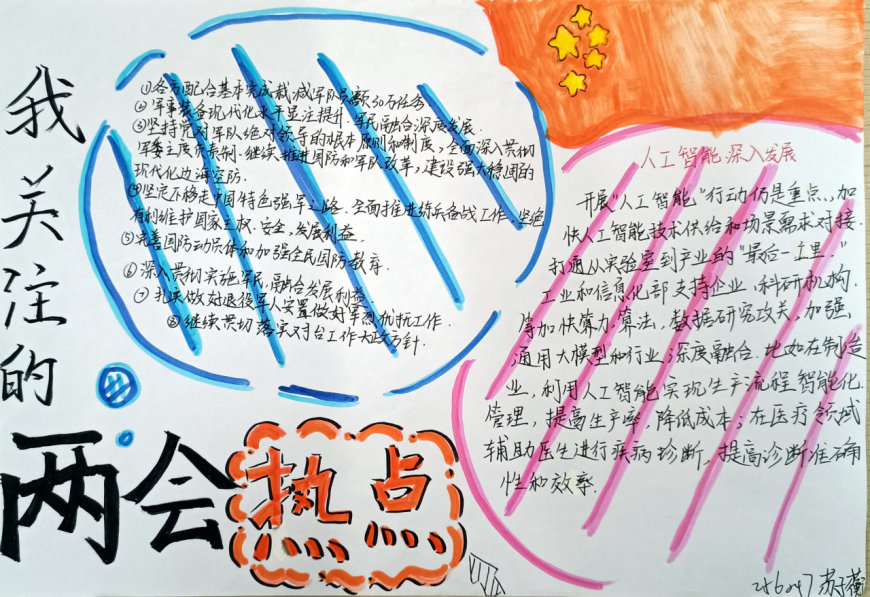 我关注的
两会热点
①各方配合基本完成裁减军队员额30万任务.
②军事装备现代化水平显注提升.军民融合深度发展.
③坚持党对军队绝对领导的根本原则和制度,全面深入贯彻
军委主席负责制.继续推进国防和军队改革,建设强大稳固的
现代化边海空防.
④坚定不移走中国特色强军之路.全面推进练兵备战工作,坚绝
有利维护国家主权、安全,发展利益.
⑤完善国防动员体和加强全民国防教育.
⑥深入贯彻实施军民融合发展利益.
⑦扎实做好退役军人安置做好军烈优抚工作.
⑧继续贯切落实对台工作大政方针.
人工智能深入发展
开展"人工智能"行动仍是重点,加
快人工智能技术供给和场景需求对接.
打通从实验室到产业的"最后一公里."
工业和信息化部支持企业,科研机构.
等加快算力,算法,数据研究攻关,加强
通用大模型和行业深度融合.比如在制造
业,利用人工智能实现生产流程智能化.
管理,提高生产率,降低成本;在医疗领域
辅助医生进行疾病诊断,提高诊断准确
性和效率.